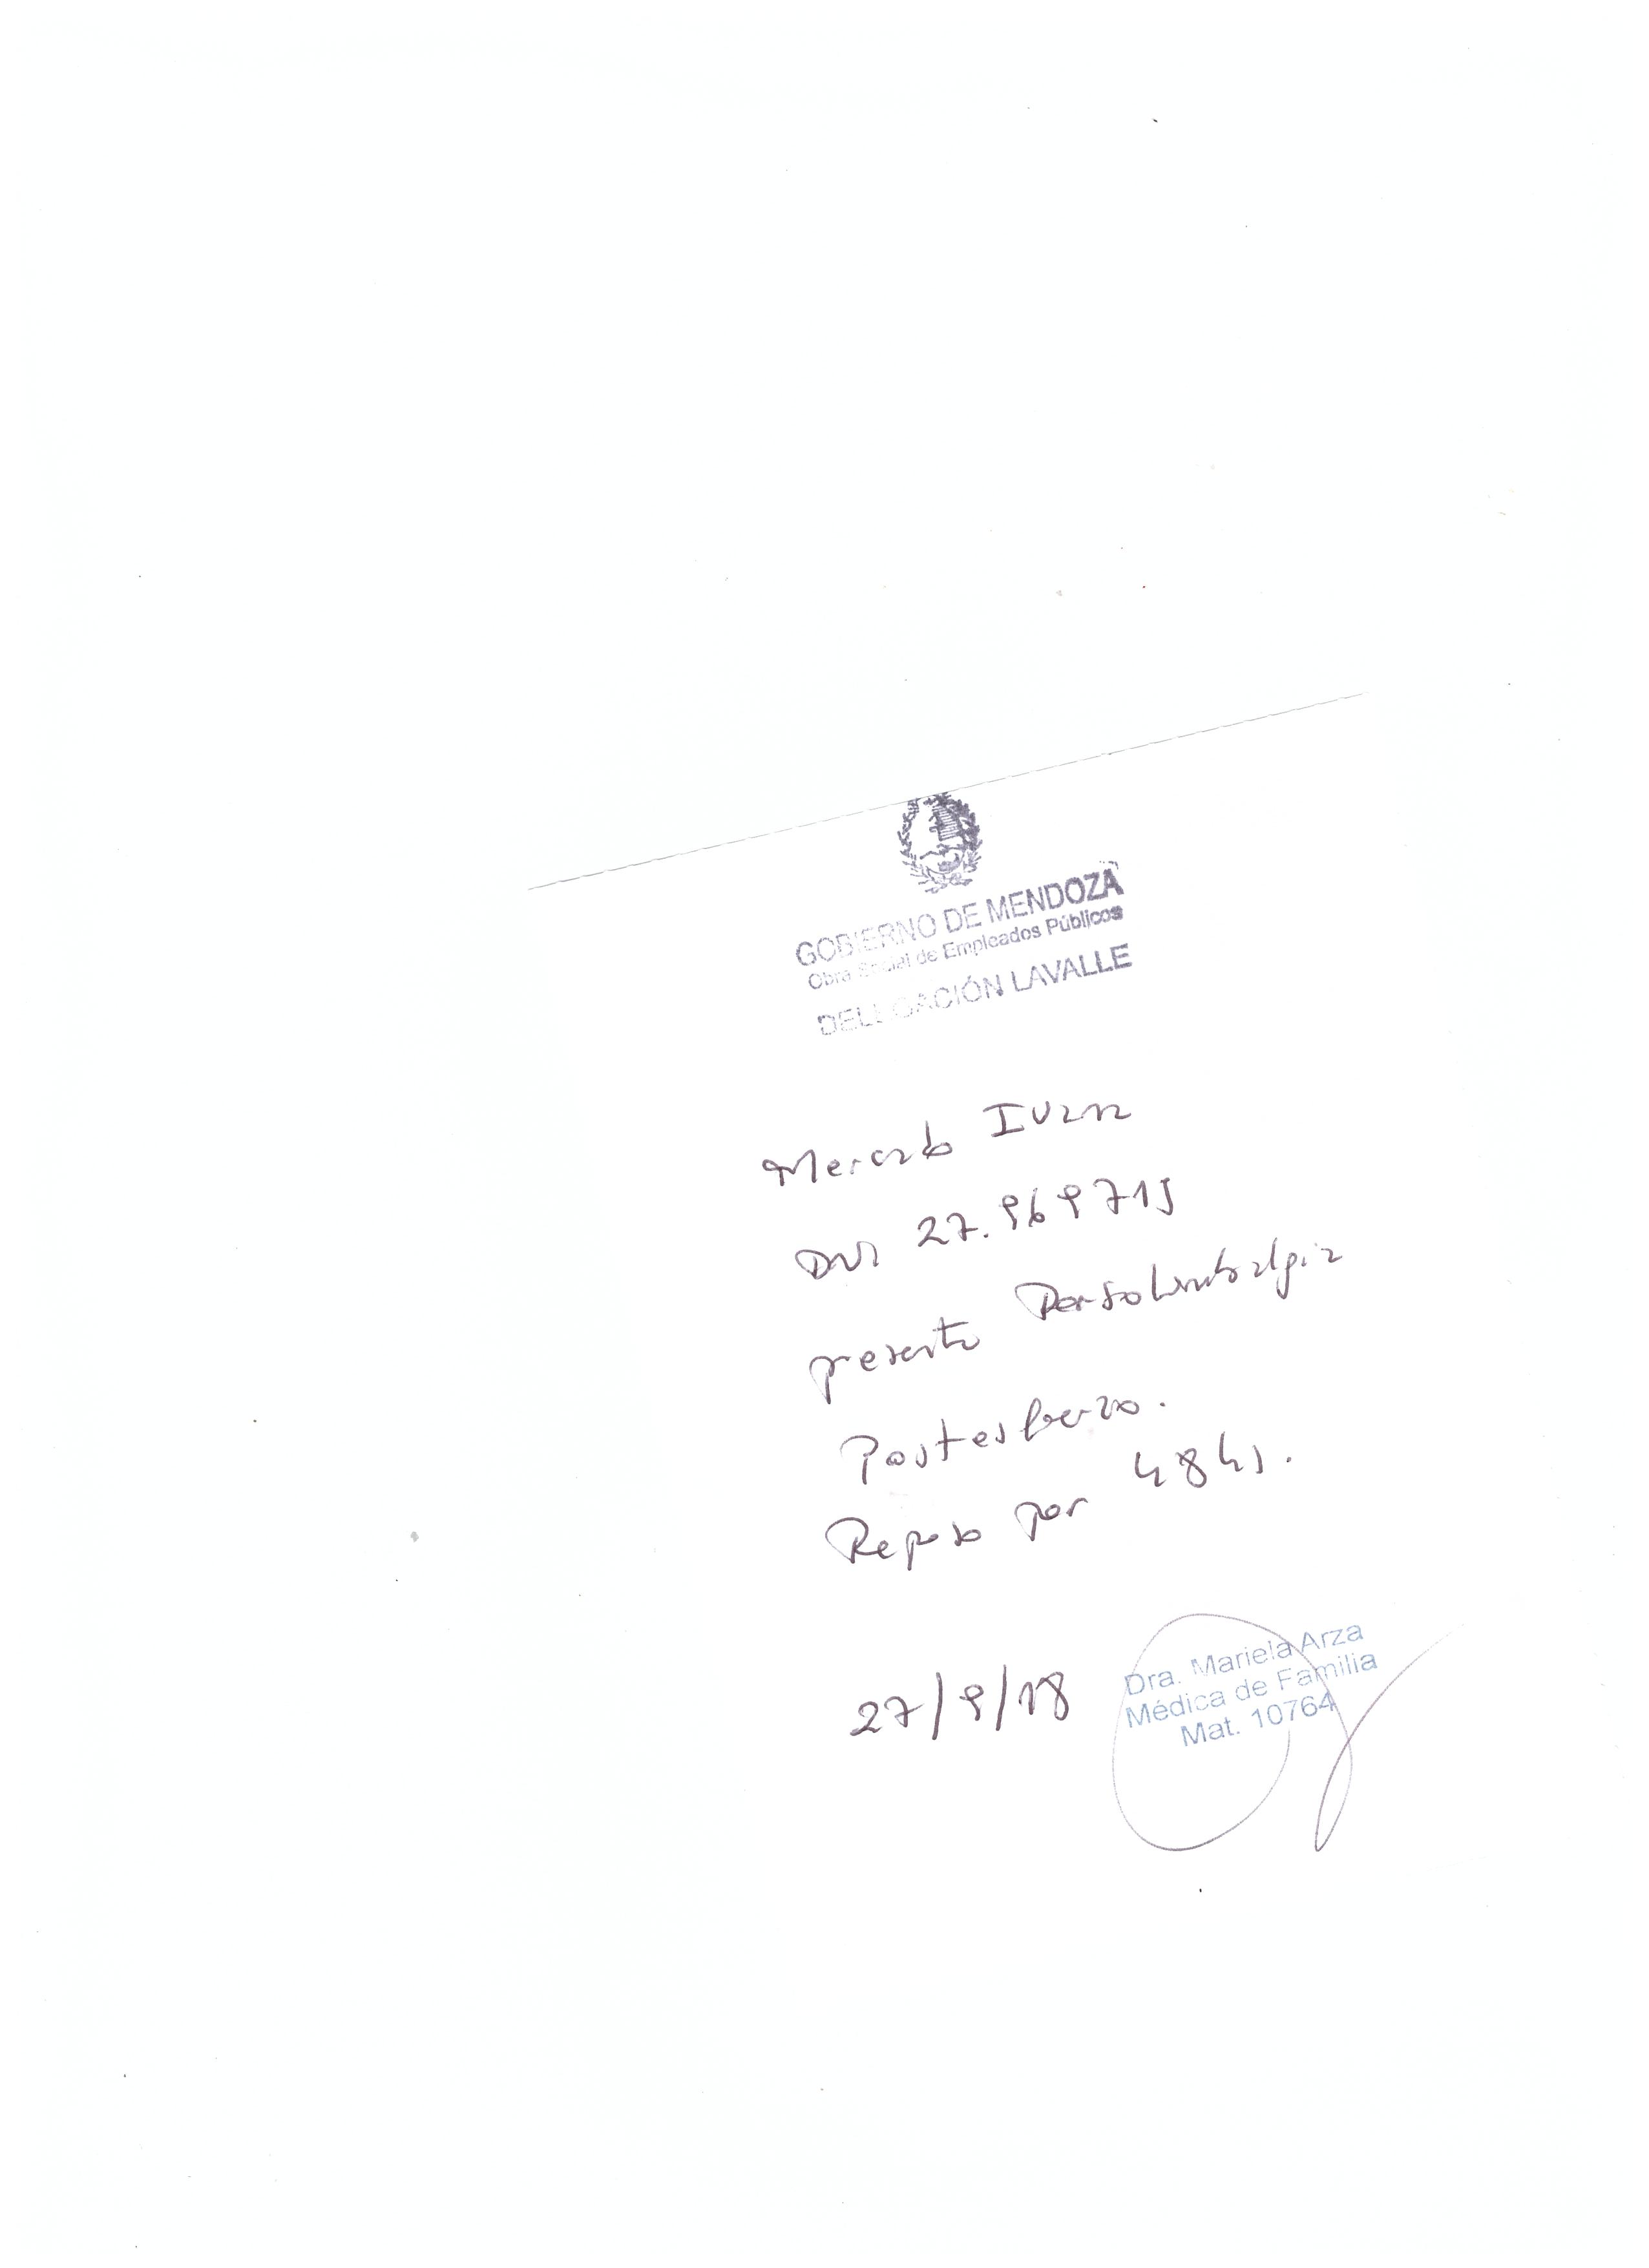 GOBIERNO DE MENDOZA
Obra Social de Empleados Públicos
DELEGACIÓN LAVALLE
Mercado Ivan
DNI 27.969715
presenta Dorsolumbalgia
Postesfuerzo.
Reposo por 48 hs.
27/9/18
Dra. Mariela Arza
Médica de Familia
Mat. 10764